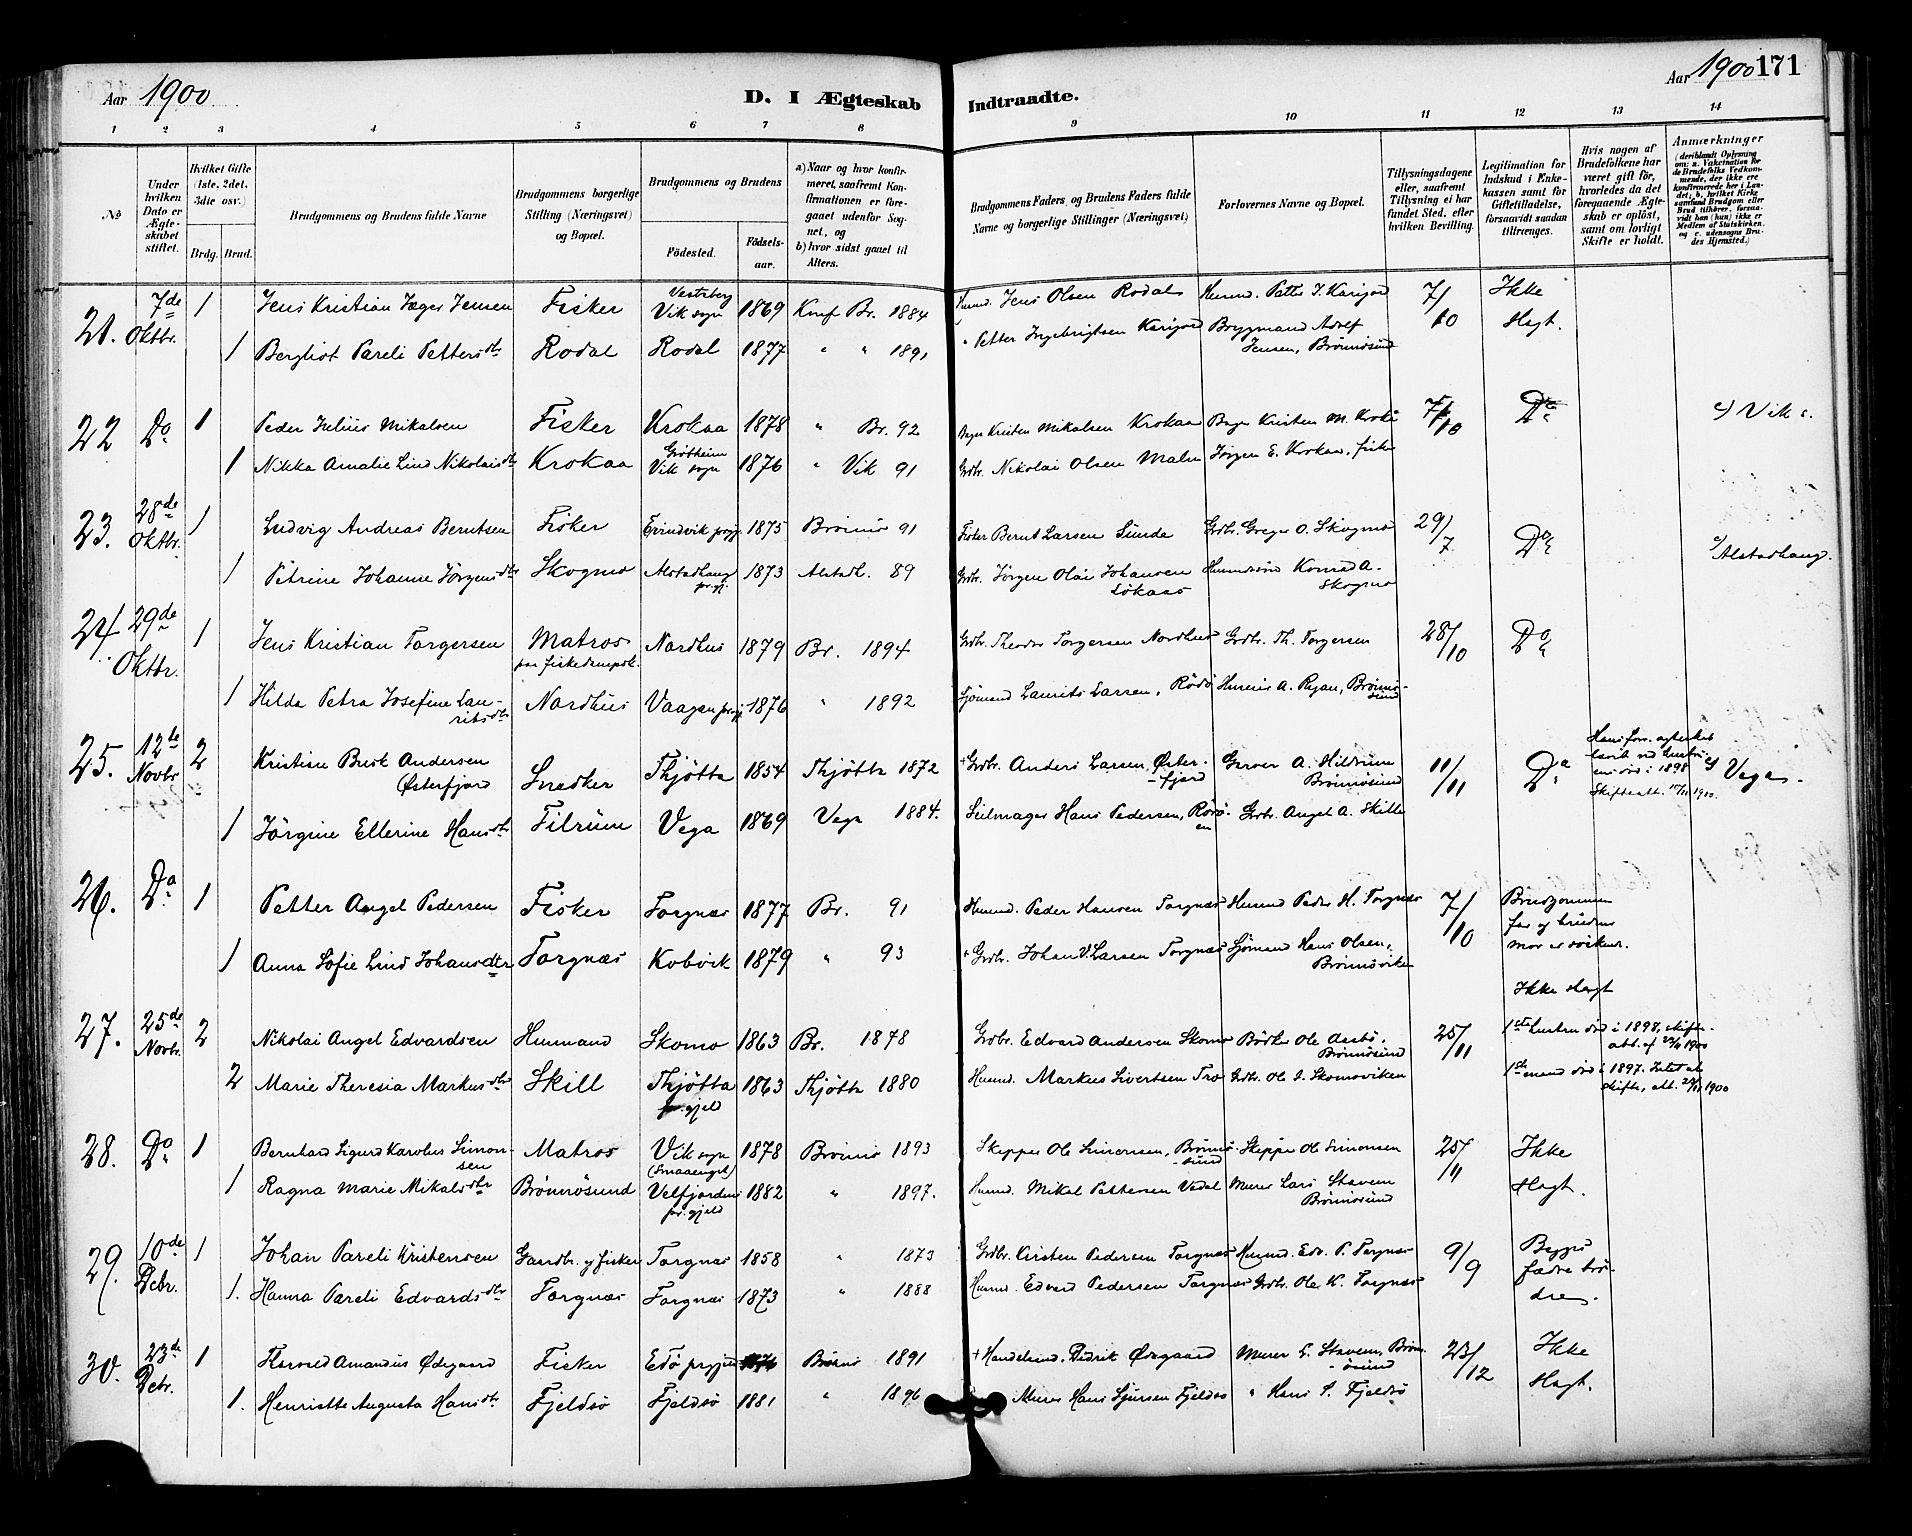 Aar 1900
D. I Ægteskab
Indtraadte.
Aar 1900 171
1 2 3 4 5 6 7 8 9 10 11 12 13 14
No
Under hvilken Dato er Ægteskabet stiftet.
Hvilket Gifte (1ste, 2det, 3die osv.)
Brdg. Brud.
Brudgommens og Brudens fulde Navne
Brudgommens borgerlige Stilling (Næringsvei) og Bopæl.
Brudgommens og Brudens
Födested.
Födselsaar.
a) Naar og hvor konfirmeret, saafremt Konfirmationen er foregaaet udenfor Sognet, og
b) hvor sidst gaaet til Alters.
Brudgommens Faders og Brudens Faders fulde Navne og borgerlige Stillinger (Næringsvei)
Forlovernes Navne og Bopæl.
Tillysningsdagene eller, saafremt Tillysning ei har fundet Sted, efter hvilken Bevilling.
Legitimation for Indskud i Enkekassen samt for Giftetilladelse, forsaavidt saadan tiltrænges.
Hvis nogen af Brudefolkene har været gift för, hvorledes da det foregaaende Ægteskab er oplöst, samt om lovligt Skifte er holdt.
Anmærkninger
(deriblandt Oplysning om: a. Vakcination for de Brudefolks Vedkommende, der ikke ere konfirmerede her i Landet; b. hvilket Kirkesamfund Brudgom eller Brud tilhörer, forsaavidt han (hun) ikke er Medlem af Statskirken, og c. udensogns Brudes Hjemsted.)
21. 7de Oktbr. 1 Jens Kristian Jæger Jensen Fisker Vestrberg Vik sogn 1869 Konf Br. 1884 Husmd. Jens Olsen Rodal Husmd. Petter I. Karijord 7/10 Ikke
1 Bergliot Pareli Pettersdtr Rodal Rodal 1877 " " 1891 " Petter Ingebrigtsen Karijord Brygmand Adolf Jensen, Brönnösund Slegt.
22 Do 1 Peder Julius Mikalsen Fisker Krokaa 1878 " Br. 92 Kristen Mikalsen Krokaa Kristen M. Krokå 7/10 Do c) Vik s.
1 Nikka Amalie Lind Nikolaisdtr Krokaa Grötheim Vik sogn 1876 " Vik 91 Grdbr. Nikolai Olsen Malm Jörgen E. Krokaa, fisker
23. 28de Oktbr. 1 Ludvig Andreas Berntsen Fisker Evindvik prgj. 1875 Brönnö 91 Fisker Bernt Larsen Sunde Grdbr. Greger O. Skogmo 29/7 Do c) Alstadhaug.
1 Petrine Johanne Jörgensdtr Skogmo Alstadhaug prgj. 1873 Alstadh. 89 Grdbr. Jörgen Olai Johansen Sökaas Husmdssön Konrad A. Skogmo
24 29de Oktbr. 1 Jens Kristian Torgersen Matros paa fiskedampsk. Nordhus 1879 Br. 1894 Grdbr. Theodor Torgersen Nordhus Grdbr. Th. Torgersen 28/10 Do
1 Hilda Petra Josefine Lauritsdtr Nordhus Vaagan prgj. 1876 " 1892 Sjömand Laurits Larsen, Rödö A. Ryan, Brönnösund
25. 12te Novbr 2 Kristian Busk Andersen Österfjord Snedker Thjötta 1854 Thjötta 1872 + Grdbr. Anders Larsen, Österfjord Garver A. Hildrum Brönnösund 11/11 Do Hans forr. ægteskab ved hustruens död i 1898 Skifteatt. 10/11 1900. c) Vega.
1 Jörgine Ellerine Hansdtr Filrum Vega 1869 Vega 1884. Seilmager Hans Pedersen, Rörö en Grdbr. Angel A. Skille
26. Do 1 Petter Angel Pedersen Fisker Torgnæs 1877 Br. 91 Husmd. Peder Hansen Torgnæs Husmd Peder H. Torgnæs 7/10 Brudgommens far og brudens mor er söskend.
1 Anna Sofie Lind Johansdtr Torgnæs Kobvik 1879 " 93 + Grdbr. Johan V. Larsen Torgnæs Sjömand Hans Olsen, Brönnövik
Ikke slegt
27. 25de Novbr. 2 Nikolai Angel Edvardsen Husmand Skomo 1863 Br. 1878 Grdbr. Edvard Andersen Skomo Bödker Ole Aasbö, Brönnösund 25/11 1ste hustru död i 1898, skifteatt. af 22/11 1900
2 Marie Theresia Markusdtr Skill Thjötta pr.gjeld 1863 Thjötta 1880 Husmd. Markus Sivertsen Tro Grdbr. Ole J. Skomoviken 1ste mand död i 1897. Intet at skifte, att. 22/11 1900
28. Do 1 Bernhard Sigurd Karolus Simonsen Matros Vik sogn (Smaaenget) 1878 Brönnö 1893 Skipper Ole Simonsen, Brönnösund Skipper Ole Simonsen 25/11 Ikke
1 Ragna Marie Mikalsdtr Brönnösund Velfjordens pr.gjeld 1882 " 1897. Husmd. Mikal Pettersen Vedal Murer Lars Stavem Brönnösund Slegt.
29. 10de Debr. 1 Johan Pareli Kristensen Gaardbr. og fisker Torgnæs 1858 " 1873 Grdbr. Kristen Pedersen Torgnæs Husmd. Edv. P. Torgnæs 9/9 Begges fædre brödre.
1. Hanna Pareli Edvardsdtr Torgnæs Torgnæs 1873 " 1888 Husmd. Edvard Pedersen Torgnæs Grdbr. Ole K. Torgnæs
30. 23de Debr. 1 Amandus Ødegaard Fisker Edö prgjeld 1876 Brönnö 1891 + Handelsmd. Didrik Ødegaard Murer L. Stavem, Brönnösund 23/12 Ikke
1. Henriette Augusta Hansdtr Fjeldsö Fjeldsö 1881 " 1896 Murer Hans Sjursen Fjeldsö " Hans S. Fjeldsö Slegt.